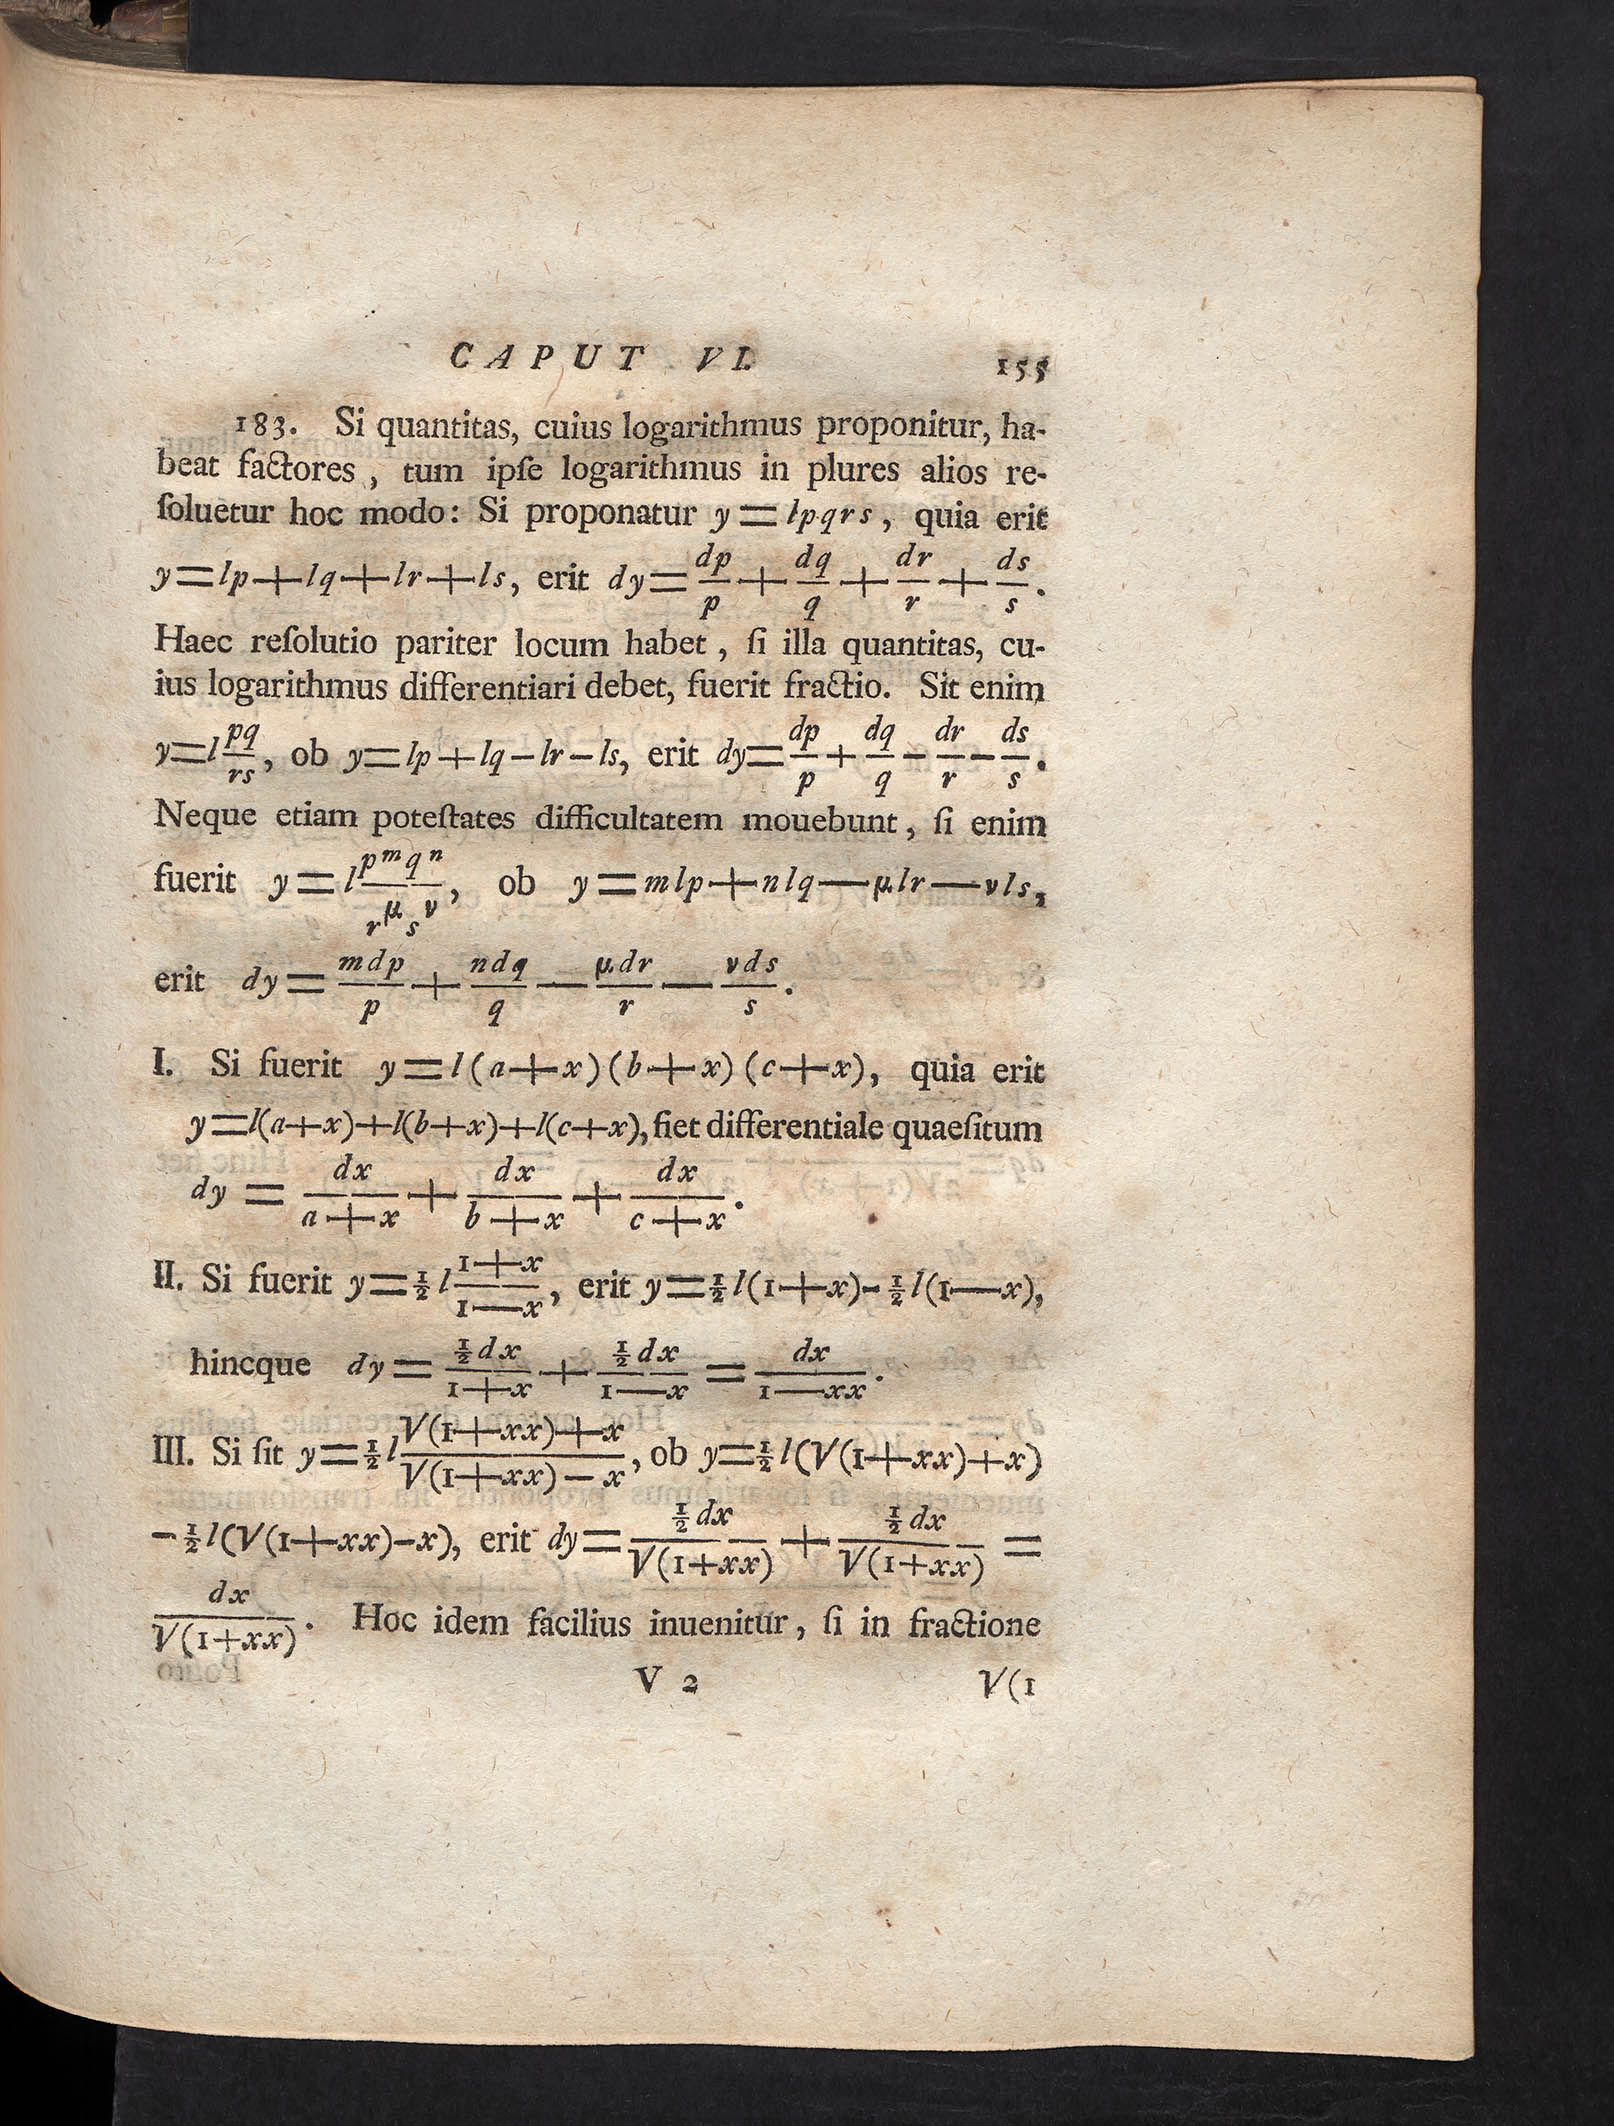 CAPUT VI. 155
183. Si quantitas, cuius logarithmus proponitur, ha-
beat factores, tum ipſe logarithmus in plures alios re-
ſoluetur hoc modo: Si proponatur y=lpqrs, quia erit
y=lp+lq+lr+ls, erit dy=dp/p+dq/q+dr/r+ds/s.
Haec reſolutio pariter locum habet, ſi illa quantitas, cu-
ius logarithmus differentiari debet, fuerit fractio. Sit enim
y=l pq/rs, ob y=lp+lq−lr−ls, erit dy=dp/p+dq/q−dr/r−ds/s.
Neque etiam poteſtates difficultatem mouebunt, ſi enim
fuerit y=l p^m q^n/r^μ s^ν, ob y=mlp+nlq—μlr—νls,
erit dy=mdp/p+ndq/q—μdr/r—νds/s.
I. Si fuerit y=l(a+x)(b+x)(c+x), quia erit
y=l(a+x)+l(b+x)+l(c+x), fiet differentiale quaeſitum
dy = dx/(a+x) + dx/(b+x) + dx/(c+x).
II. Si fuerit y=½l (1+x)/(1—x), erit y=½l(1+x)-½l(1—x),
hincque dy=½dx/(1+x)+½dx/(1—x)=dx/(1—xx).
III. Si ſit y=½l (√(1+xx)+x)/(√(1+xx)−x), ob y=½l(√(1+xx)+x)
−½l(√(1+xx)−x), erit dy=½dx/√(1+xx)+½dx/√(1+xx)=
dx/√(1+xx). Hoc idem facilius inuenitur, ſi in fractione
V 2 √(1